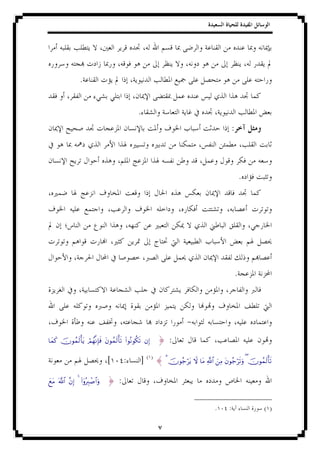 الوسائل المفيدة للحياة السعيدة
بإيمانه وبما عنده من القناعة والرضى بما قسم الله له، تجده قرير العين، لا يتطلب بقلبه أمرا
لم يقدر له، ينظر إلى من هو دونه، ولا ينظر إلى من هو فوقه، وربما زادت بهجته وسروره
وراحته على من هو متحصل على جميع المطالب الدنيوية، إذا لم يؤت القناعة.
كما تجد هذا الذي ليس عنده عمل بمقتضى الإيمان، إذا ابتلي بشيء من الفقر، أو فقد
بعض المطالب الدنيوية، تجده في غاية التعاسة والشقاء.
ومثل آخر: إذا حدثت أسباب الخوف وألمت بالإنسان المزعجات تجد صحيح الإيمان
ثابت القلب، مطمئن النفس، متمكنا من تدبيره وتسييره لهذا الأمر الذي دهمه بما هو في
وسعه من فكر وقول وعمل، قد وطن نفسه لهذا المزعج الملم، وهذه أحوال تريح الإنسان
وتثبت فؤاده.
كما تجد فاقد الإيمان بعكس هذه الحال إذا وقعت المخاوف انزعج لها ضميره،
وتوترت أعصابه، وتشتتت أفكاره، وداخله الخوف والرعب، واجتمع عليه الخوف
الخارجي، والقلق الباطني الذي لا يمكن التعبير عن كنهه، وهذا النوع من الناس؛ إن لم
يحصل لهم بعض الأسباب الطبيعية التي تحتاج إلى تمرين كثير، انهارت قواهم وتوترت
أعصابهم وذلك لفقد الإيمان الذي يحمل على الصبر، خصوصا في المحال الحرجة، والأحوال
المحزنة المزعجة.
فالبر والفاجر، والمؤمن والكافر يشتركان في جلب الشجاعة الاكتسابية، وفي الغريزة
التي تلطف المخاوف وتهونها ولكن يتميز المؤمن بقوة إيمانه وصبره وتوكله على الله
واعتماده عليه، واحتسابه لثوابه- أمورا تزداد بها شجاعته، وتخفف عنه وطأة الخوف،
وتهون عليه المصاعب، كما قال تعالى: ﴿ إِن تَكُونُوا تَأْلَمُونَ فَإِنَّهُمْ يَأْلَمُونَ كَمَا
تَأْلَمُونَ وَتَرْجُونَ مِنَ اللَّهِ مَا لَا يَرْجُونَ ﴾ [النساء:١٠٤] (١)، ويحصل لهم من معونة
الله ومعينه الخاص ومدده ما يبعثر المخاوف، وقال تعالى: ﴿ وَاصْبِرُوا إِنَّ اللَّهَ مَعَ
(١) سورة النساء آية: ١٠٤.
٧